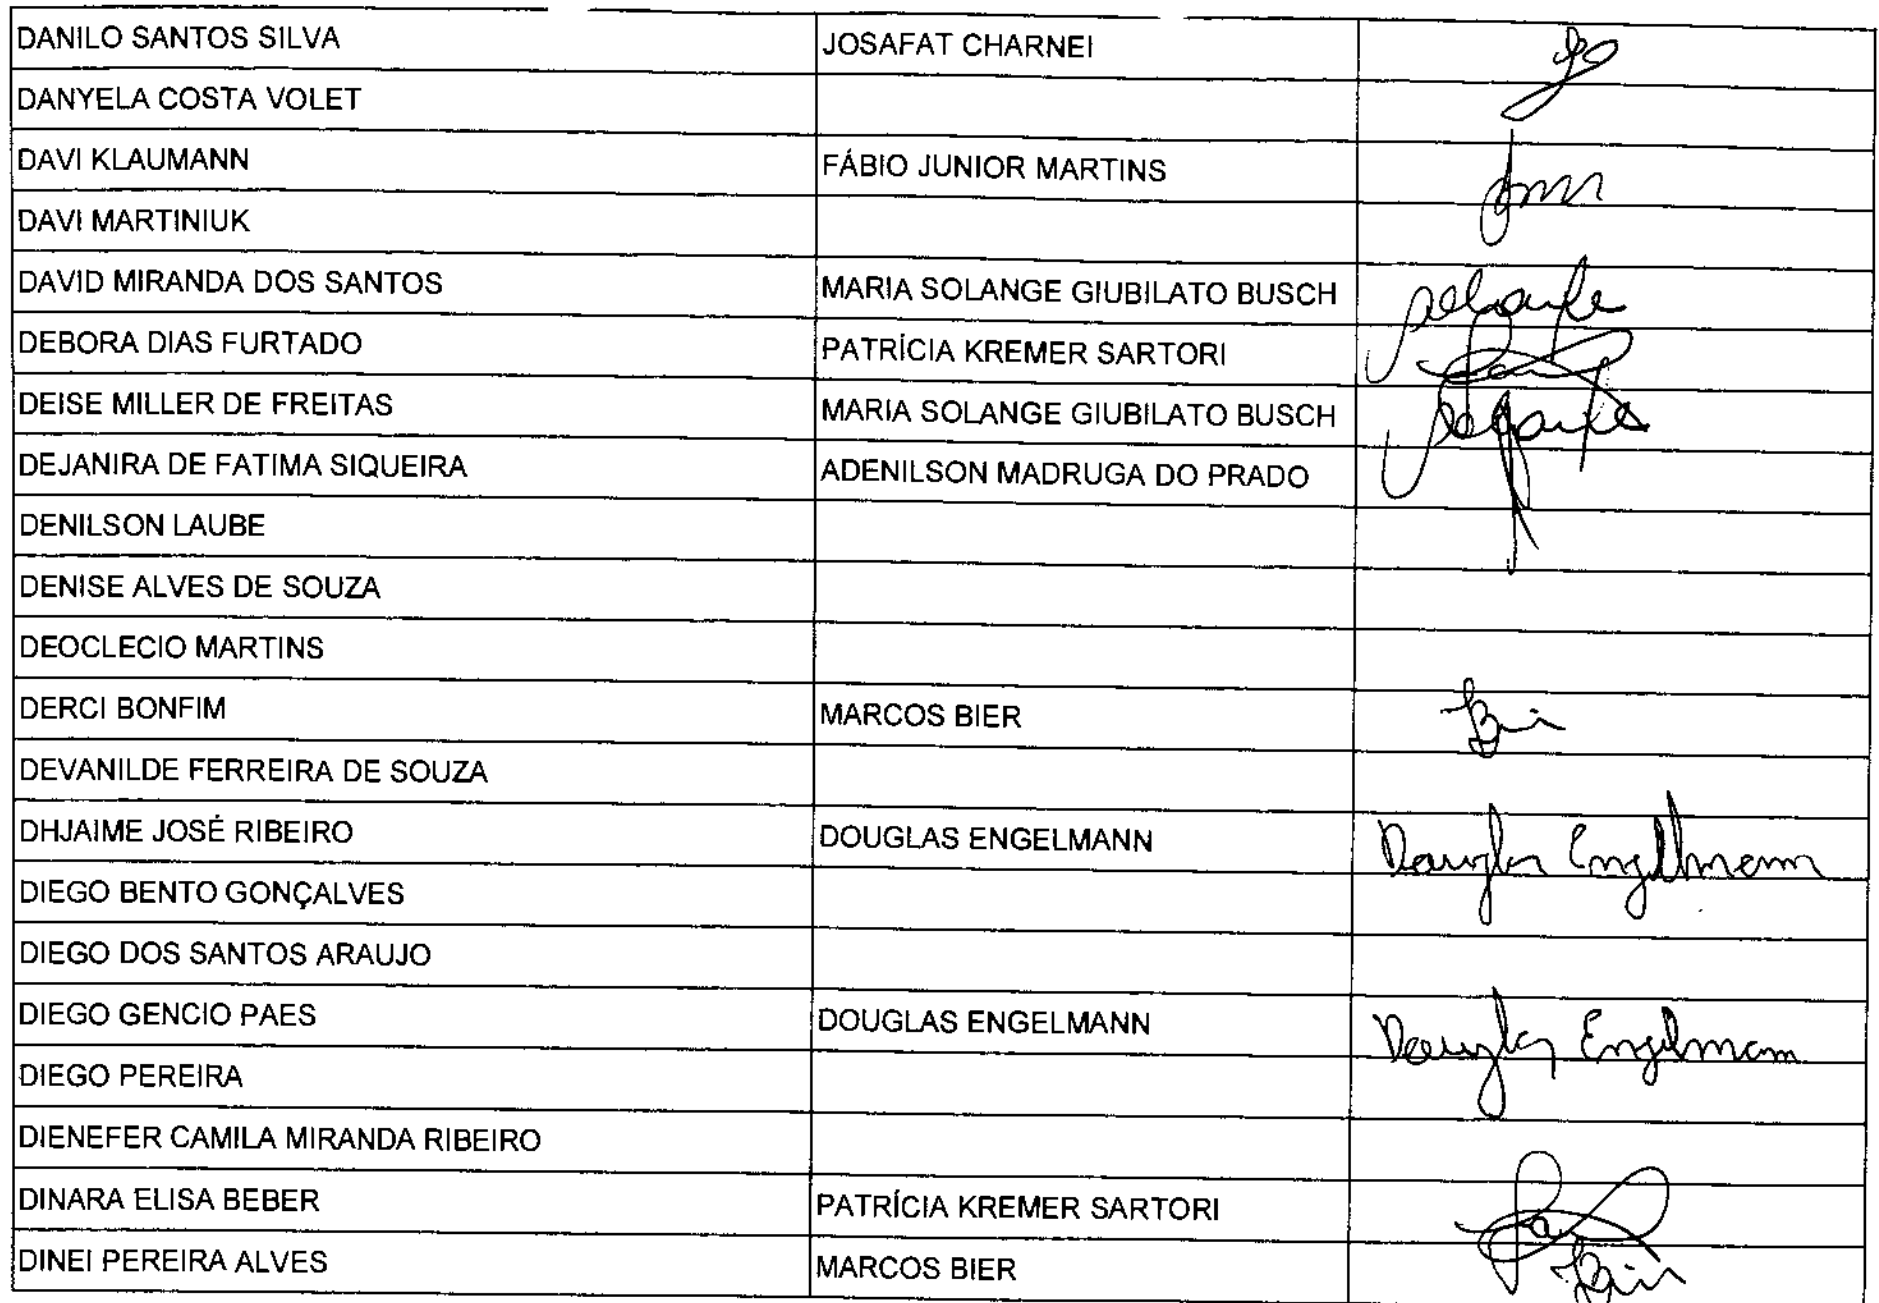 DANILO SANTOS SILVA JOSAFAT CHARNEI
DANYELA COSTA VOLET
DAVI KLAUMANN FÁBIO JUNIOR MARTINS
DAVI MARTINIUK
DAVID MIRANDA DOS SANTOS MARIA SOLANGE GIUBILATO BUSCH
DEBORA DIAS FURTADO PATRÍCIA KREMER SARTORI
DEISE MILLER DE FREITAS MARIA SOLANGE GIUBILATO BUSCH
DEJANIRA DE FATIMA SIQUEIRA ADENILSON MADRUGA DO PRADO
DENILSON LAUBE
DENISE ALVES DE SOUZA
DEOCLECIO MARTINS
DERCI BONFIM MARCOS BIER
DEVANILDE FERREIRA DE SOUZA
DHJAIME JOSÉ RIBEIRO DOUGLAS ENGELMANN Douglas Engelmann
DIEGO BENTO GONÇALVES
DIEGO DOS SANTOS ARAUJO
DIEGO GENCIO PAES DOUGLAS ENGELMANN Douglas Engelmann
DIEGO PEREIRA
DIENEFER CAMILA MIRANDA RIBEIRO
DINARA ELISA BEBER PATRÍCIA KREMER SARTORI
DINEI PEREIRA ALVES MARCOS BIER